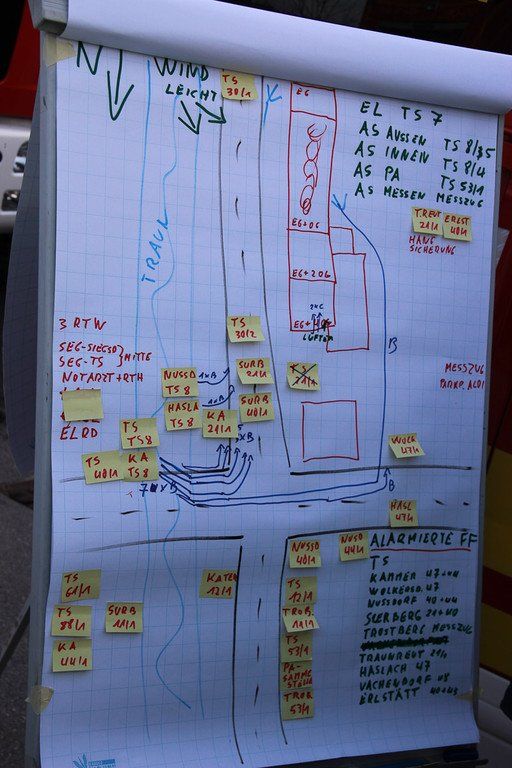 N
WIND
LEICHT
TS
30/1
EG
EG+OG
EG+2OG
LÜFTER
EL TS 7
AS AUSSEN TS 8/35
AS INNEN TS 8/4
AS PA TS 53/1
AS MESSEN MESSZUG
T.REUT
21/1
ERLST
40/1
HANG
SICHERUNG
TRAUN
TS
30/2
3 RTW
SEG-SIEGSD
SEG-TS
MITTE
NOTARZT+RTH
ELRD
NUSSD
TS 8
1xB
SURB
21/1
HASLA
TS 8
1xB
KA
21/1
SURB
40/1
TS
21/1
KA
TS8
TS
TS8
TS
40/1
xB
B
B
MESSZUG
PARKP. ALDI
WOLK
47/1
HASL
47/1
NUSSD
40/1
NUSD
44/1
ALARMIERTE FF
TS
KAMMER 47+44
WOLKERSD. 47
NUSSDORF 40+44
SURBERG 21+40
TROSTBERG MESSZUG
TRAUNREUT 21/1
HASLACH 47
VACHENDORF 48
ERLSTÄTT 40+43
TS
61/1
KATER
12/1
TS
12/1
TS
88/1
SURB
11/1
TROB.
14/1
KA
44/1
TS
53/1
PA-
SAMMEL
STELLE
TROB
53/1